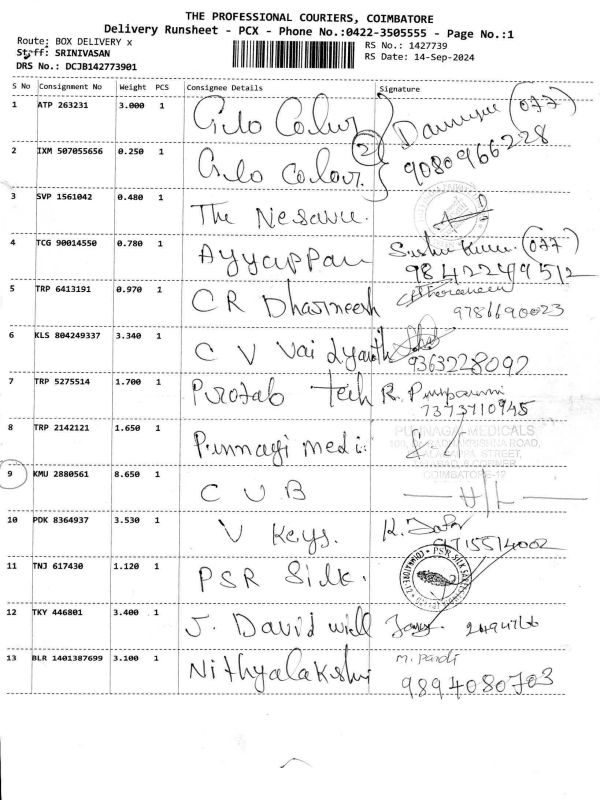 THE PROFESSIONAL COURIERS, COIMBATORE
Delivery Runsheet - PCX - Phone No.:0422-3505555 - Page No.:1
Route: BOX DELIVERY x
Staff: SRINIVASAN
DRS No.: DCJB142773901
RS No.: 1427739
RS Date: 14-Sep-2024
S No Consignment No Weight PCS Consignee Details Signature
1 ATP 263231 3.000 1 Glo Colour (077)
2 9080966228
2 IXM 507055656 0.250 1 Glo Colour.
3 SVP 1561042 0.480 1 The Nesavu.
4 TCG 90014550 0.780 1 Ayyappan (077)
9842249512
5 TRP 6413191 0.970 1 C R Dharneesh
9786690023
6 KLS 804249337 3.340 1 C V Vaidyanath
9363228092
7 TRP 5275514 1.700 1 Tech R.
7373710945
8 TRP 2142121 1.650 1 Punnagi medi
PUNNAGAI MEDICALS
STREET,
COIMBATORE
9 KMU 2880561 8.650 1 C U B
10 PDK 8364937 3.530 1 V Keys.
9715514002
11 TNJ 617430 1.120 1 PSR Silk.
12 TKY 446801 3.400 1 J. David will
13 BLR 1401387699 3.100 1 Nithyalakshi
9894080703